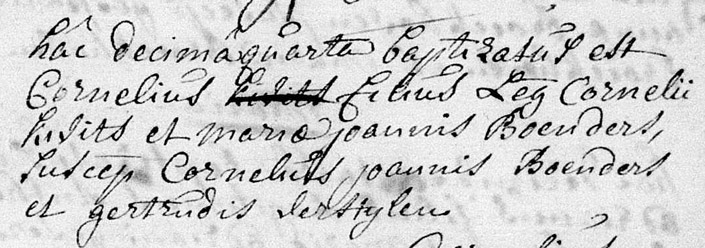 hâc decimâ quarta baptizatus est
Cornelius filius Leg Cornelii
et maria joannis Boenders,
suscep Cornelius joannis Boenders
et gertrudis